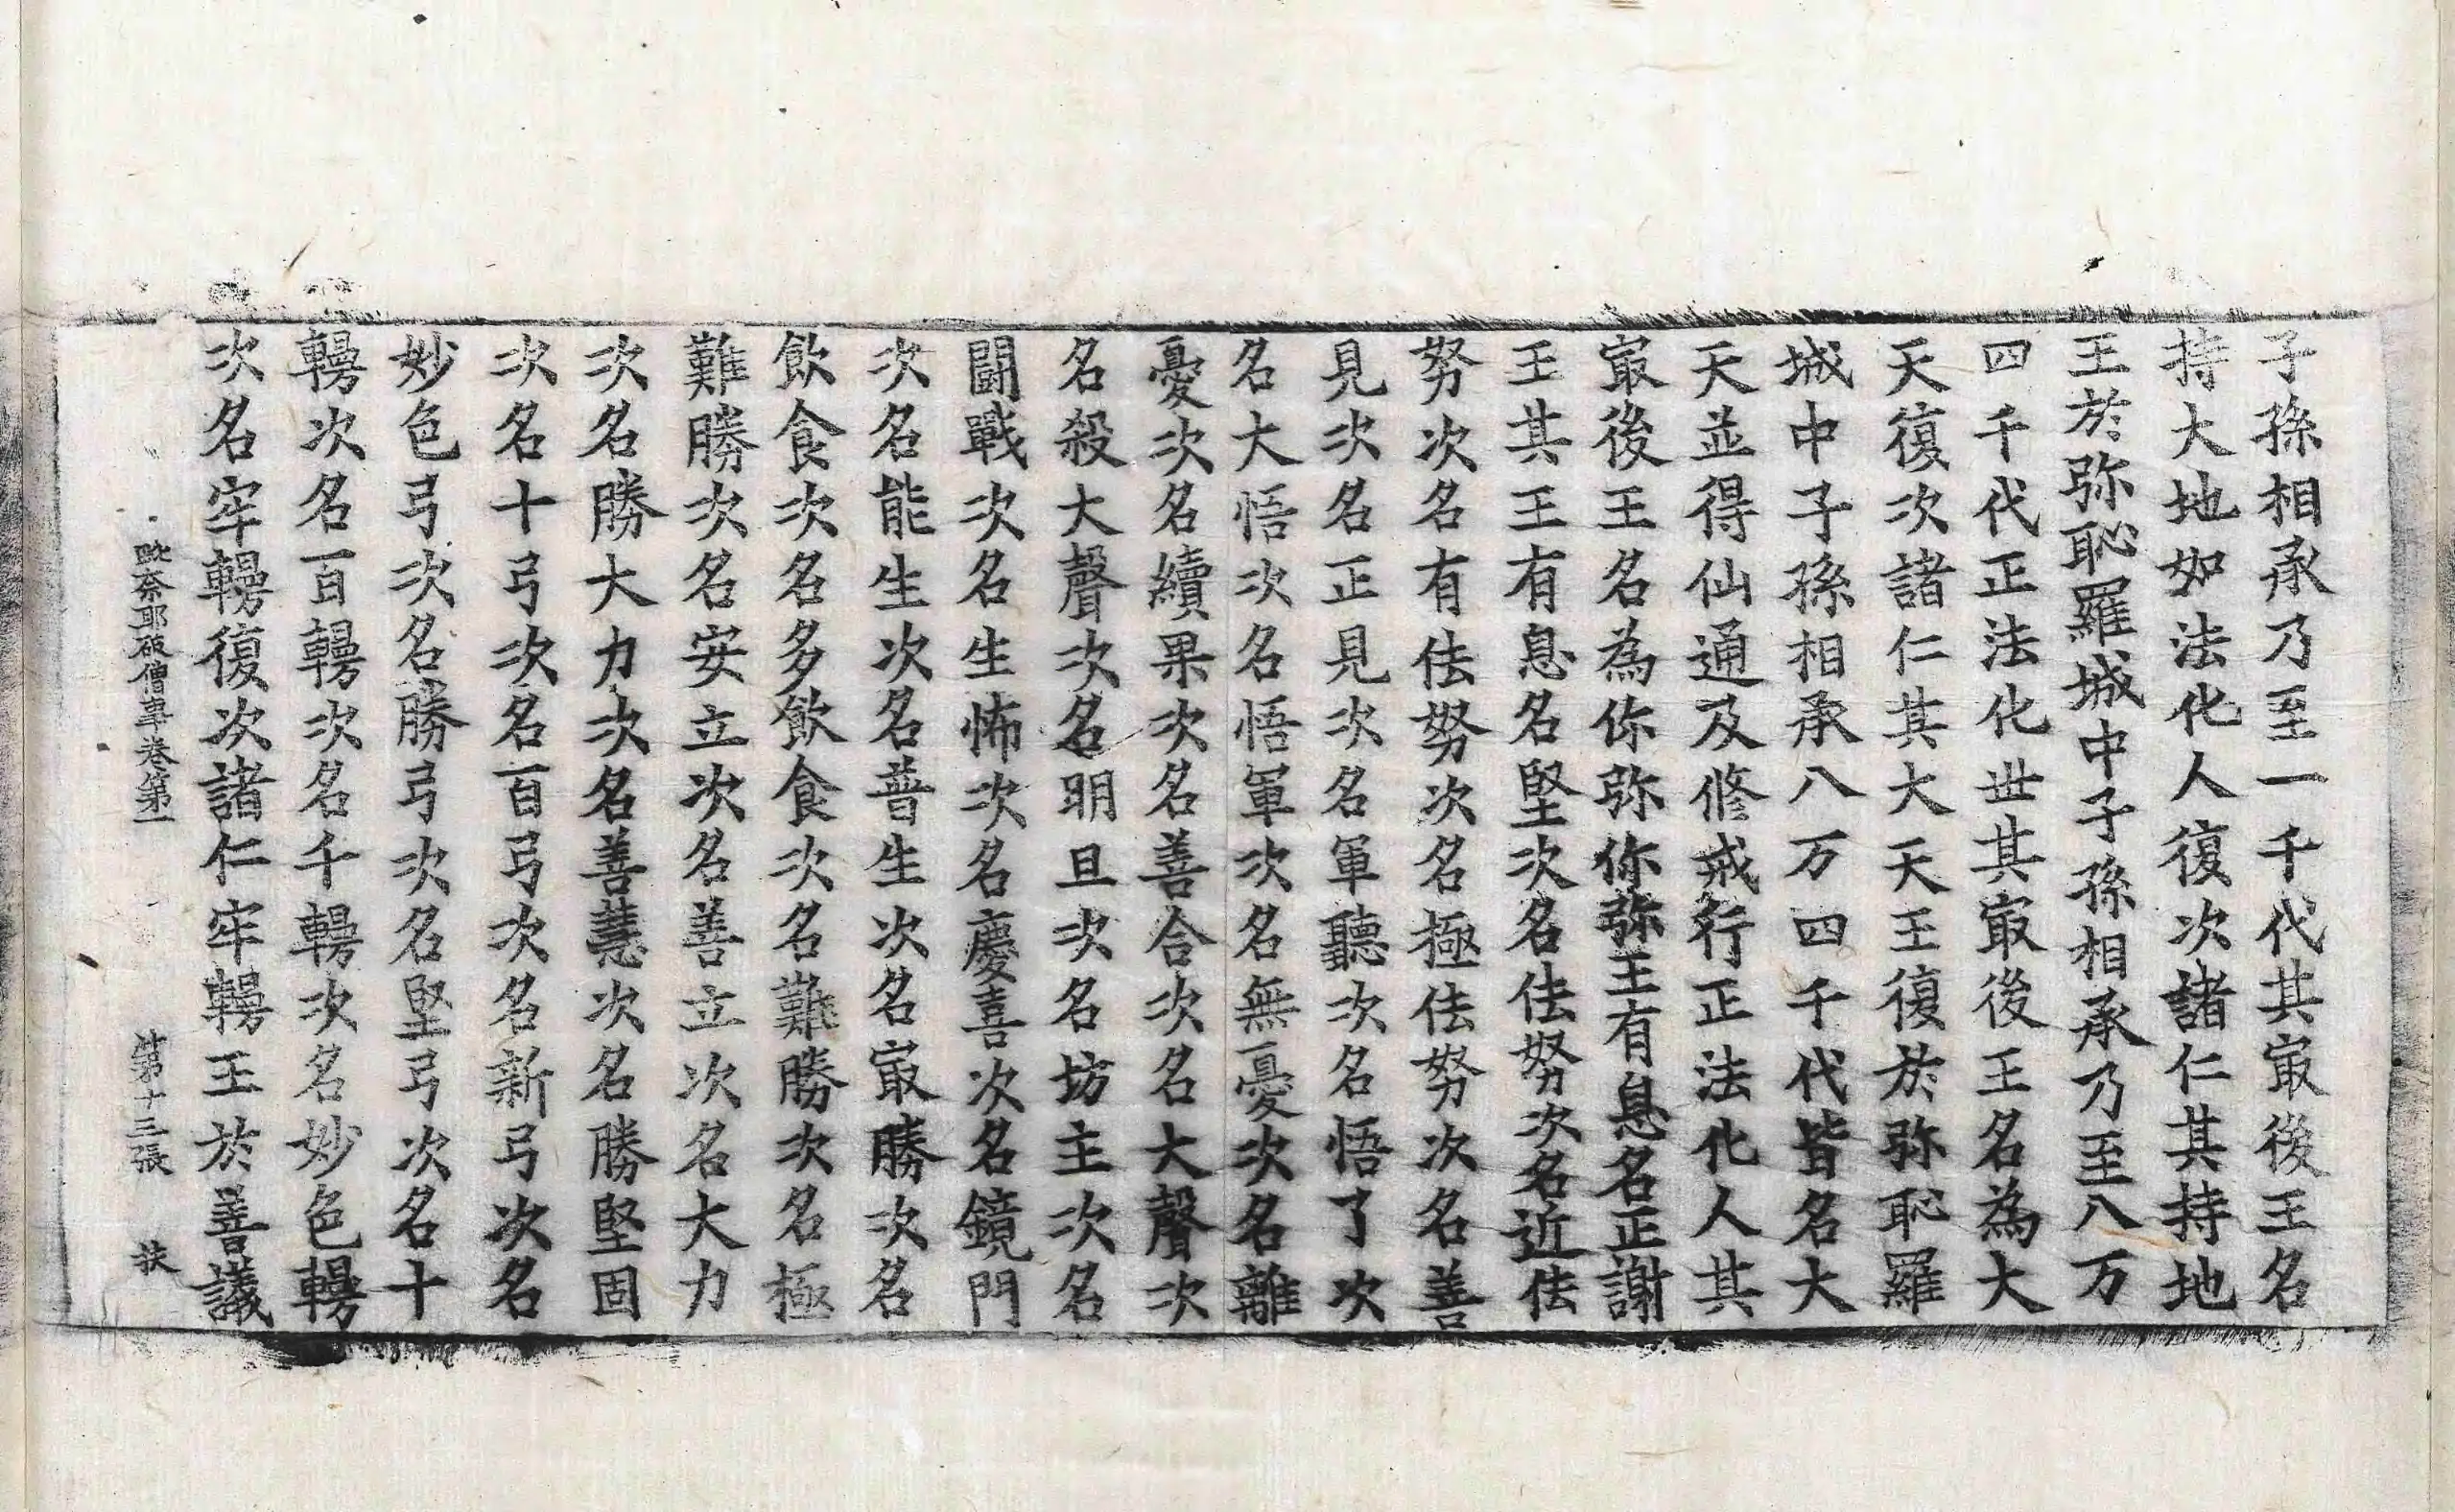 子孫相承乃至一千代其㝡後王名
持大地如法化人復次諸仁其持地
王於弥恥羅城中子孫相承乃至八万
四千代正法化世其㝡後王名為大
天復次諸仁其大天王復於弥恥羅
城中子孫相承八万四千代皆名大
天並得仙通及修戒行正法化人其
㝡後王名為你弥你弥王有息名正謝
王其王有息名堅次名佉努次名近佉
努次名有佉努次名極佉努次名善
見次名正見次名軍聽次名悟了次
名大悟次名悟軍次名無憂次名離
憂次名續果次名善合次名大聲次
名殺大聲次名明旦次名坊主次名
闘戰次名生怖次名慶喜次名鏡門
次名能生次名普生次名㝡勝次名
飲食次名多飲食次名難勝次名極
難勝次名安立次名善立次名大力
次名勝大力次名善慧次名勝堅固
次名十弓次名百弓次名新弓次名
妙色弓次名勝弓次名堅弓次名十
轋次名百轋次名千轋次名妙色轋
次名牢轋復次諸仁牢轋王於善議
毗奈耶破僧事卷第一 第十三張 扶